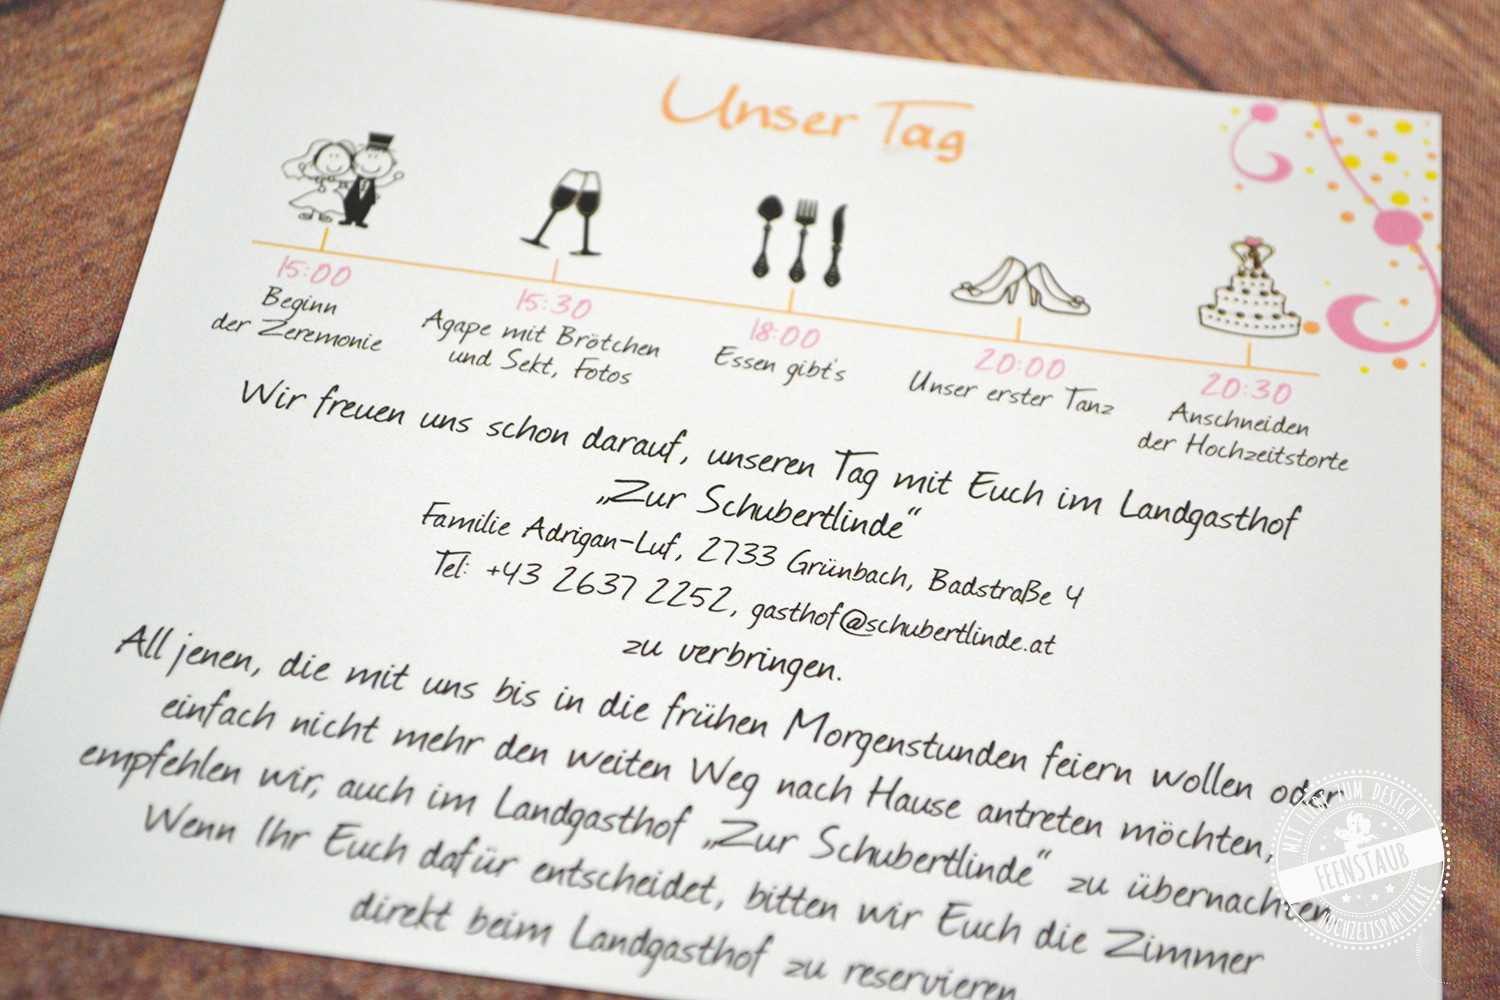 Unser Tag
15:00
Beginn
der Zeremonie
15:30
Agape mit Brötchen
und Sekt, Fotos
18:00
Essen gibt's
20:00
Unser erster Tanz
20:30
Anschneiden
der Hochzeitstorte
Wir freuen uns schon darauf, unseren Tag mit Euch im Landgasthof
„Zur Schubertlinde“
Familie Adrigan-Luf, 2733 Grünbach, Badstraße 4
Tel: +43 2637 2252, gasthof@schubertlinde.at
zu verbringen.
All jenen, die mit uns bis in die frühen Morgenstunden feiern wollen oder
einfach nicht mehr den weiten Weg nach Hause antreten möchten,
empfehlen wir, auch im Landgasthof „Zur Schubertlinde“ zu übernachten.
Wenn Ihr Euch dafür entscheidet, bitten wir Euch die Zimmer
direkt beim Landgasthof zu reservieren
MIT ZUM DESIGN
FEENSTAUB
HOCHZEITSPAPETERIE